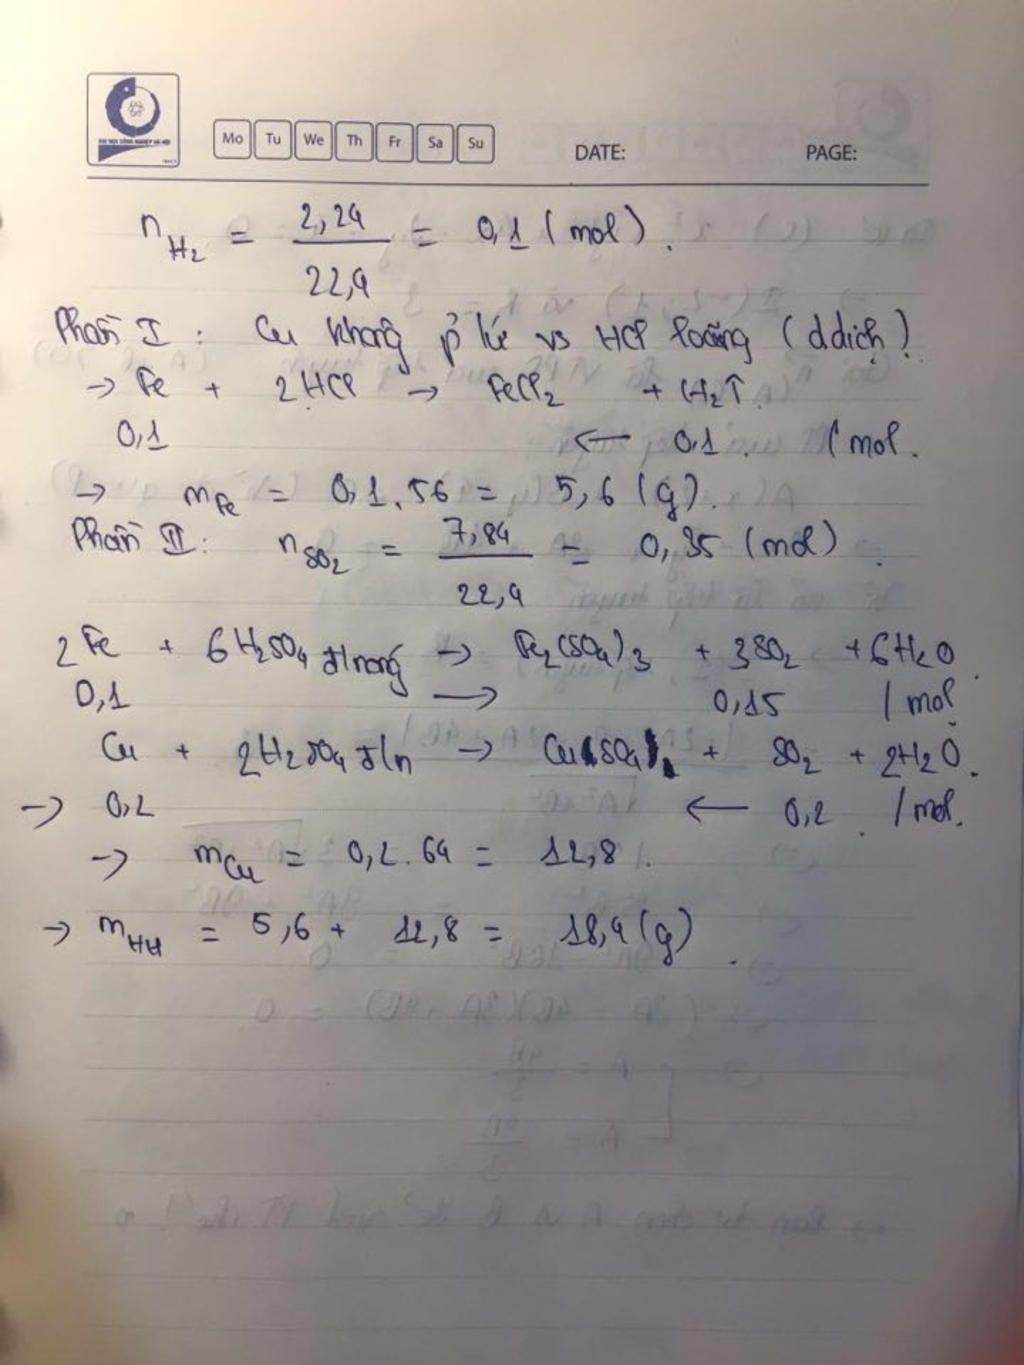 ĐẠI HỌC CÔNG NGHIỆP HÀ NỘI
Mo Tu We Th Fr Sa Su DATE: PAGE:
n_H₂ = 2,24 / 22,4 = 0,1 (mol).
Phần I: Cu không p/ứ vs HCl loãng (ddịch).
→ Fe + 2HCl → FeCl₂ + H₂↑.
0,1 ← 0,1. /mol.
→ m_Fe = 0,1.56 = 5,6 (g).
Phần II: n_SO₂ = 7,84 / 22,4 = 0,35 (mol).
2Fe + 6H₂SO₄ đ/nóng → Fe₂(SO₄)₃ + 3SO₂ + 6H₂O.
0,1 → 0,15 /mol
Cu + 2H₂SO₄ đ/n → CuSO₄ + SO₂ + 2H₂O.
→ 0,2 ← 0,2. /mol.
→ m_Cu = 0,2.64 = 12,8.
→ m_HH = 5,6 + 12,8 = 18,4 (g).